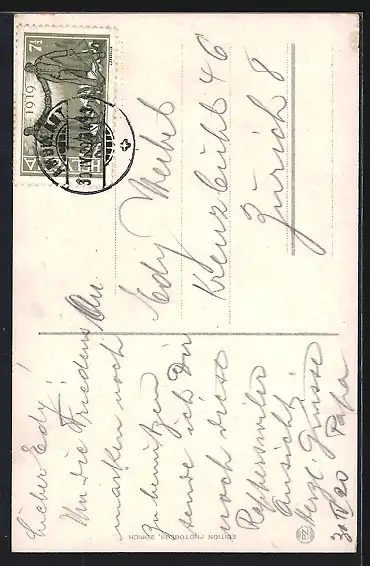 Lieber Edy!
Um die Friedens
marken noch
zu benützen
sende ich Dir
noch diese
Rapperswiler
Ansicht.
Herzl. Grüsse
Papa
An
Edy
Kreuzbühl 46
Zürich 8
1919
7½
HELVETIA
EDITION PHOTOGLOB, ZÜRICH
PZ